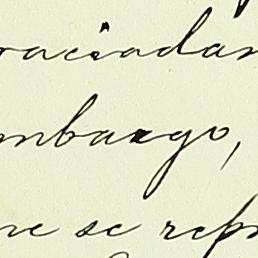 raciadam
mbargo,
ne se rep